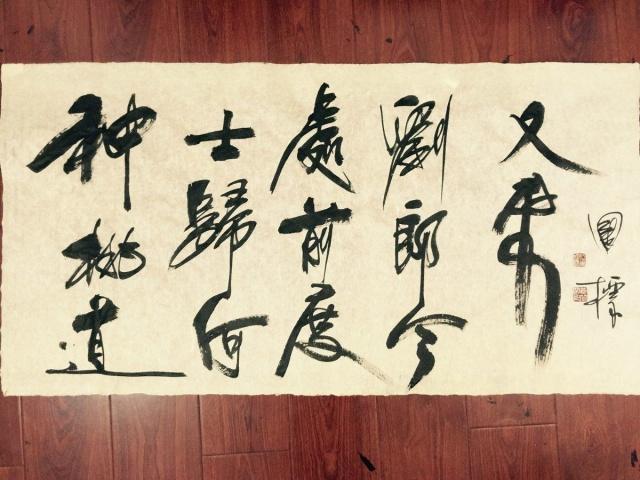 种桃道
士歸何
處前度
劉郎今
又來